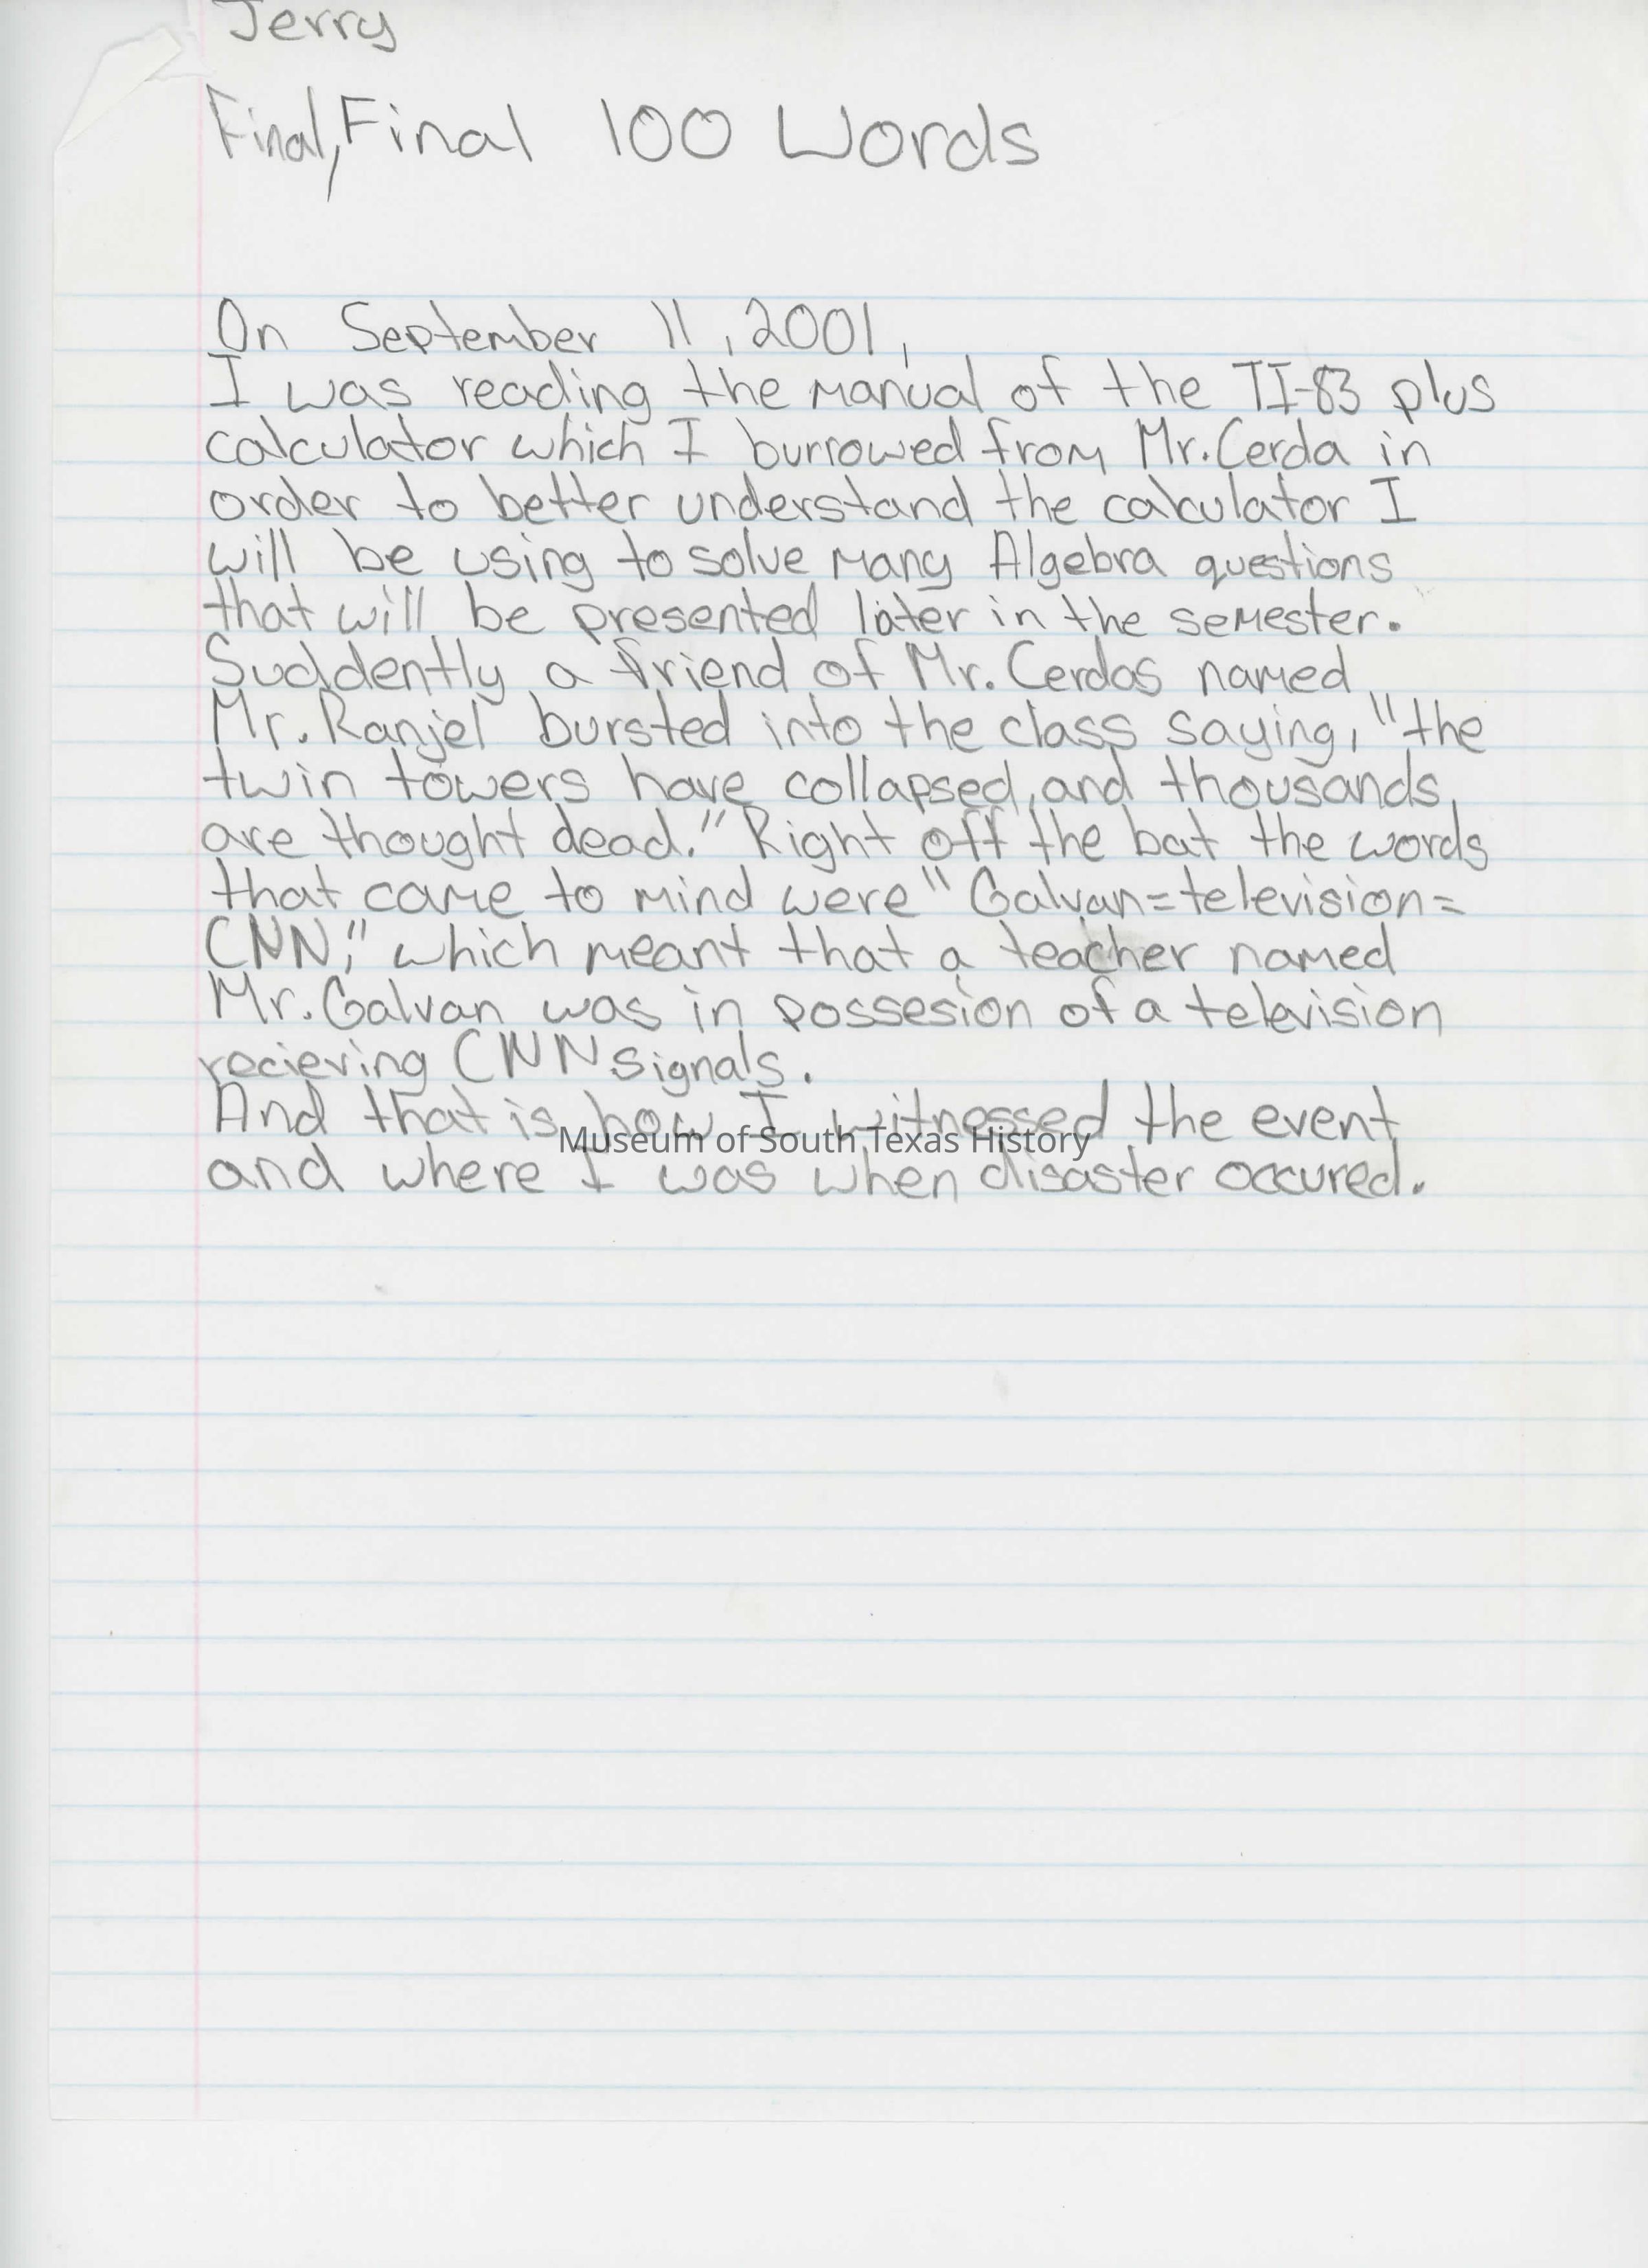 Jerry
Final, Final 100 Words
On September 11, 2001,
I was reading the manual of the TI-83 plus
calculator which I burrowed from Mr. Cerda in
order to better understand the calculator I
will be using to solve many Algebra questions
that will be presented later in the semester.
Suddently a friend of Mr. Cerdas named
Mr. Ranjel bursted into the class saying, "the
twin towers have collapsed, and thousands
are thought dead." Right off the bat the words
that came to mind were "Galvan=television=
CNN," which meant that a teacher named
Mr. Galvan was in possesion of a television
recieving CNN signals.
And that is how I witnessed the event
Museum of South Texas History
and where I was when disaster occured.